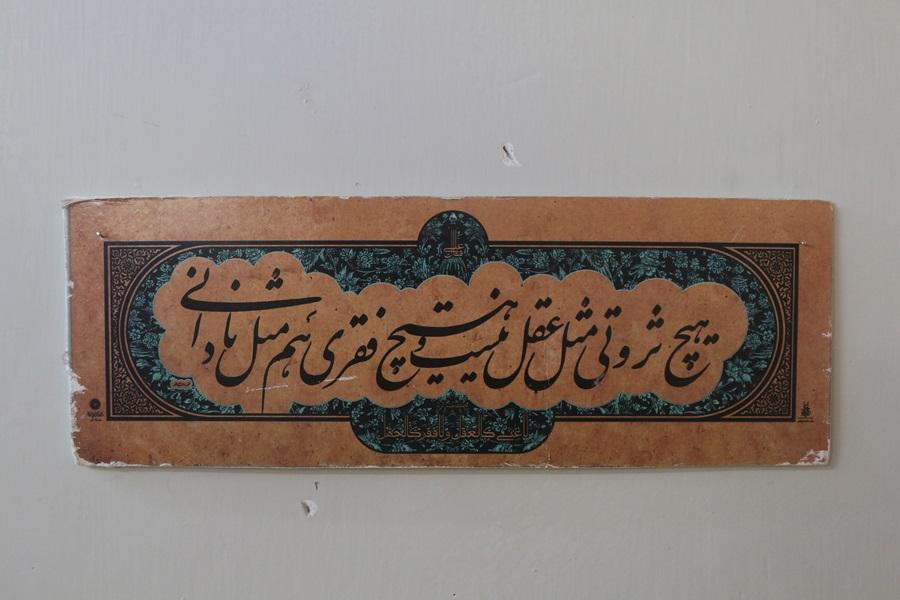 هیچ ثروتی مثل عقل نیست و هیچ فقری هم مثل نادانی
لا غنی کالعقل و لا فقر کالجهل